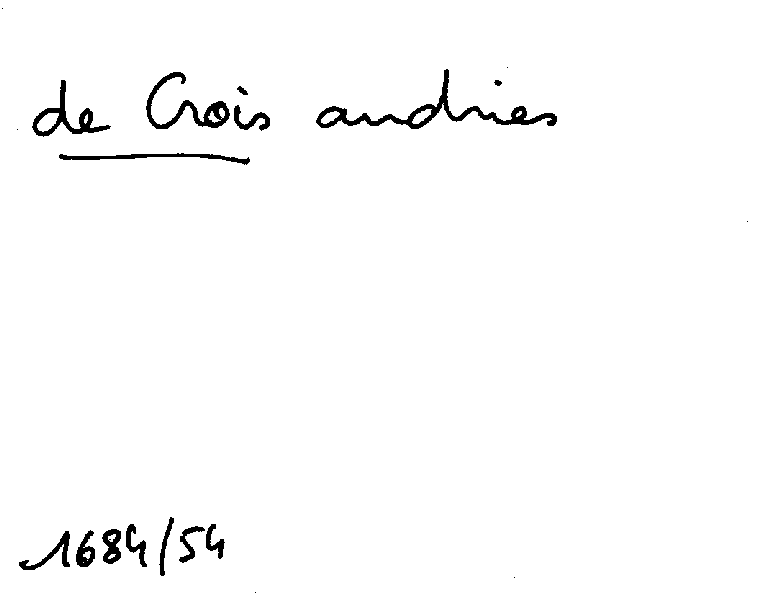 de Crois andries
1684/54